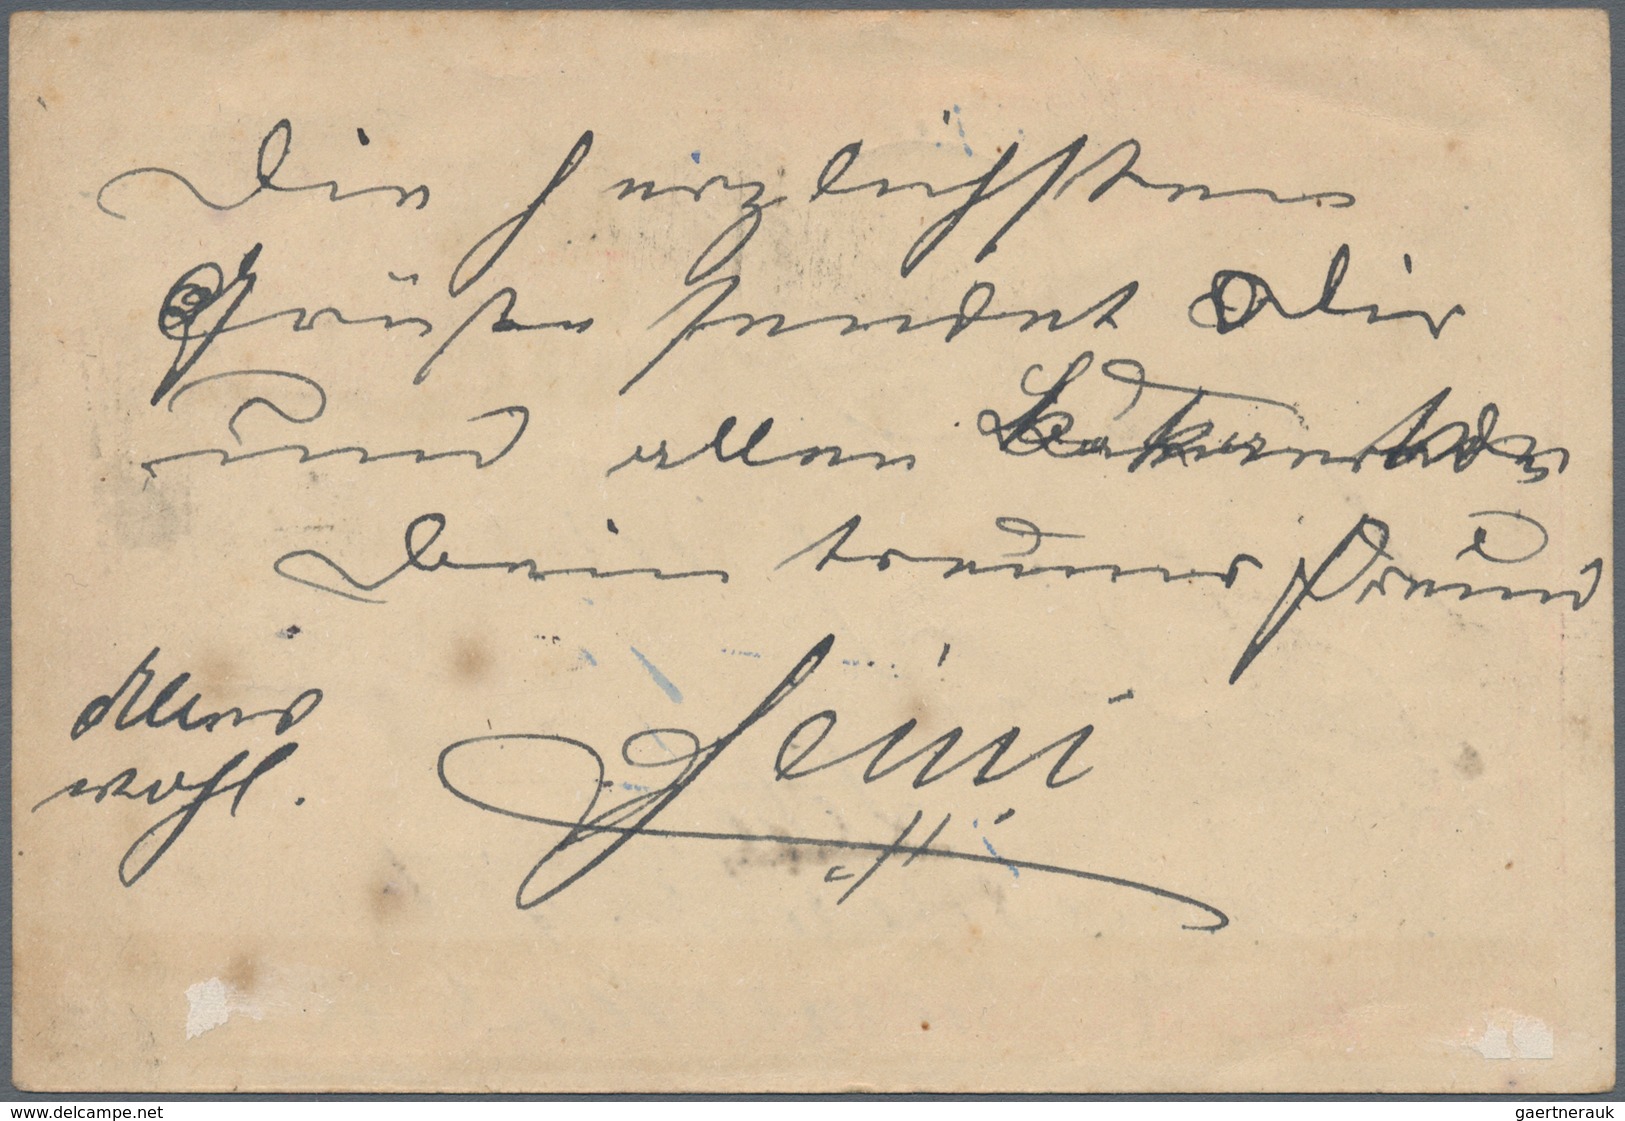 Die herzlichsten
Grüße sendet Dir
und allen Bekannten
Dein treuer Freund
Alles
wohl.
www.delcampe.net
gaertnerauk